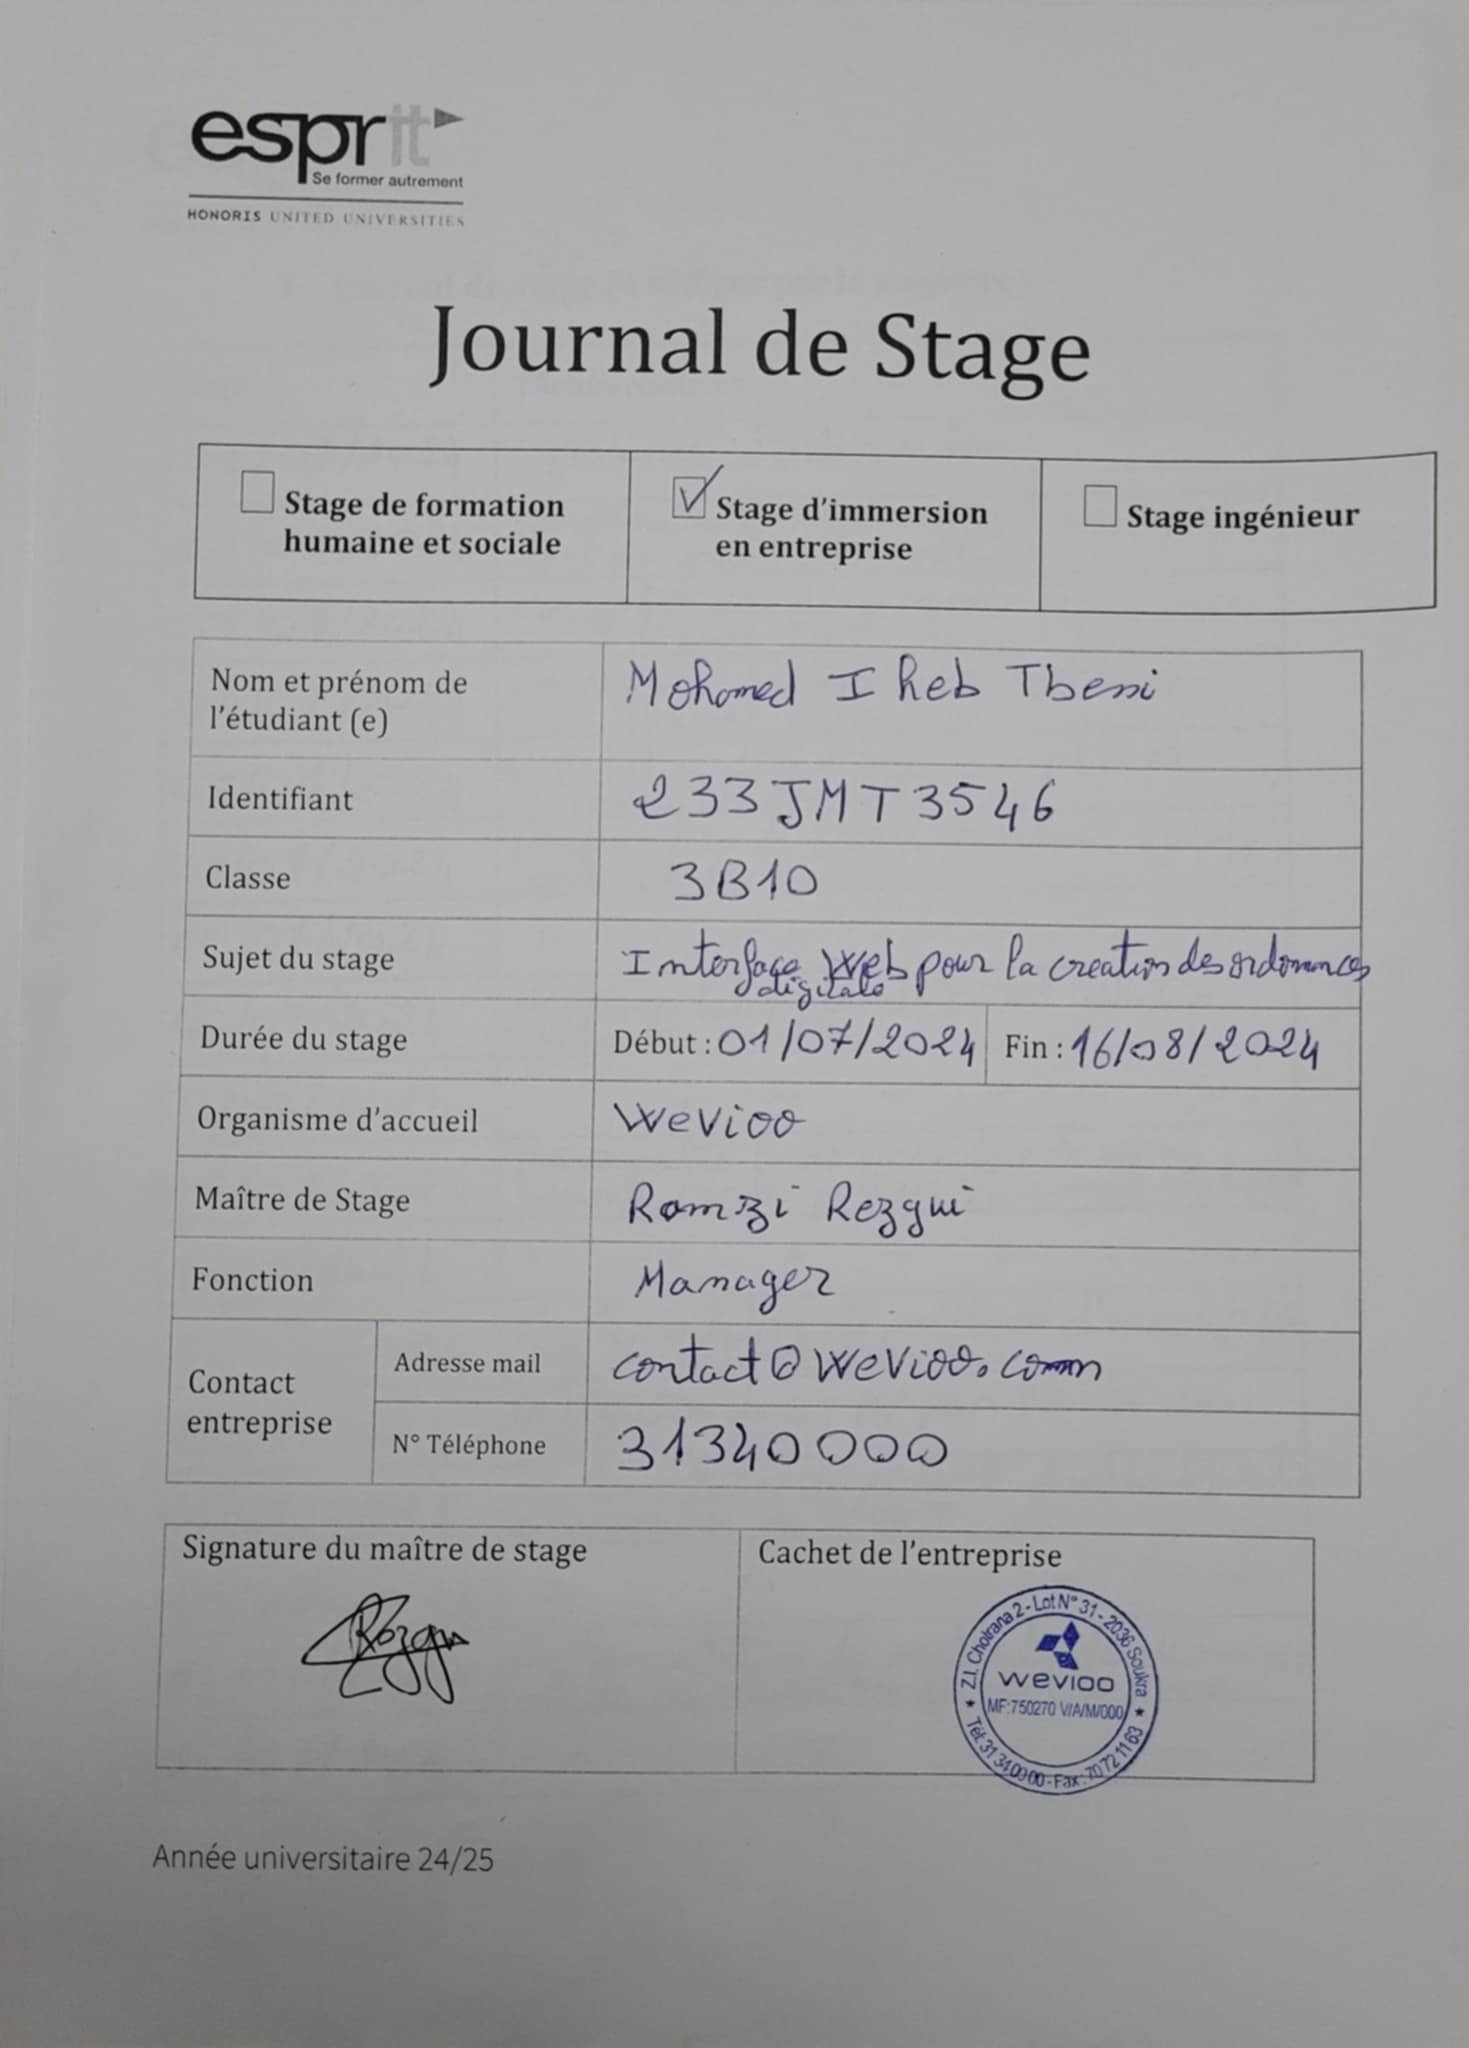 esprit
Se former autrement
HONORIS UNITED UNIVERSITIES
Journal de Stage
Stage de formation
humaine et sociale
Stage d'immersion
en entreprise
Stage ingénieur
Nom et prénom de
l'étudiant (e)
Mohamed Iheb Tbessi
Identifiant
233JMT3546
Classe
3B10
Sujet du stage
Interface Web pour la creation des ordonnances
digitale
Durée du stage
Début : 01/07/2024
Fin : 16/08/2024
Organisme d'accueil
Wevioo
Maître de Stage
Ramzi Rezgui
Fonction
Manager
Contact
entreprise
Adresse mail
contact@wevioo.com
N° Téléphone
31340000
Signature du maître de stage
Rezgui
Cachet de l'entreprise
Z.I. Chotrana 2 - Lot N° 31 - 2036 Soukra
wevioo
MF:750270 V/A/M/000
Tél: 31 34 00 00 - Fax : 70 72 11 63
Année universitaire 24/25